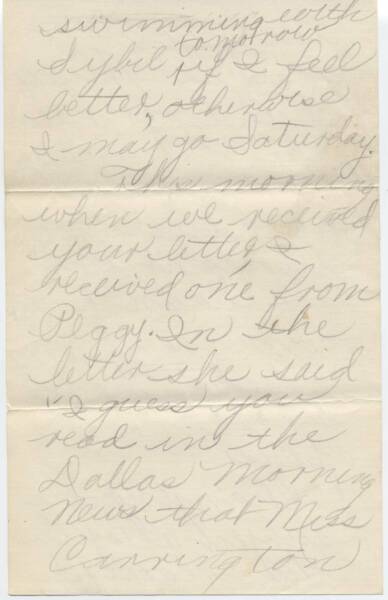 swimming with
tomorrow
Sybil if I feel
better, otherwise
I may go Saturday.
This morning
when we received
your letter, I
received one from
Peggy. In the
letter she said
"I guess you
read in the
Dallas Morning
News that Miss
Carrington